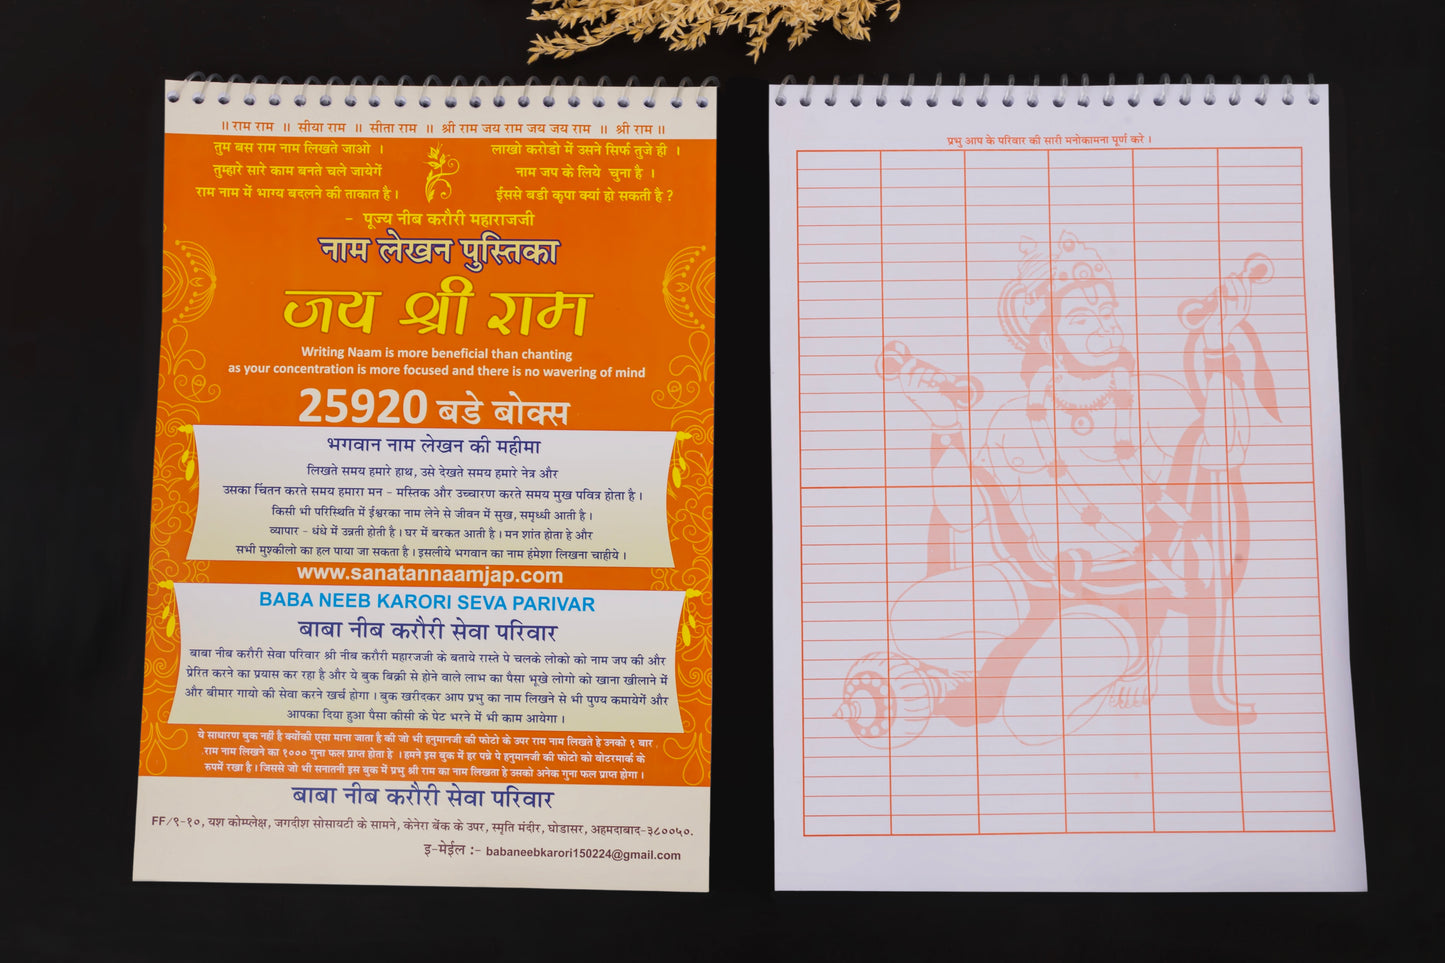 ॥ राम राम ॥ सीया राम ॥ सीता राम ॥ श्री राम जय राम जय जय राम ॥ श्री राम ॥
तुम बस राम नाम लिखते जाओ ।
तुम्हारे सारे काम बनते चले जायेगें
राम नाम में भाग्य बदलने की ताकात है ।
लाखो करोडो में उसने सिर्फ तुजे ही ।
नाम जप के लिये चुना है ।
ईससे बडी कृपा क्यां हो सकती है ?
- पूज्य नीब करौरी महाराजजी
नाम लेखन पुस्तिका
जय श्री राम
Writing Naam is more beneficial than chanting
as your concentration is more focused and there is no wavering of mind
25920 बडे बोक्स
भगवान नाम लेखन की महीमा
लिखते समय हमारे हाथ, उसे देखते समय हमारे नेत्र और
उसका चिंतन करते समय हमारा मन - मस्तिक और उच्चारण करते समय मुख पवित्र होता है ।
किसी भी परिस्थिति में ईश्वरका नाम लेने से जीवन में सुख, समृध्धी आती है ।
व्यापार - धंधे में उन्नती होती है । घर में बरकत आती है । मन शांत होता हे और
सभी मुश्कीलो का हल पाया जा सकता है । इसलीये भगवान का नाम हंमेशा लिखना चाहीये ।
www.sanatannaamjap.com
BABA NEEB KARORI SEVA PARIVAR
बाबा नीब करौरी सेवा परिवार
बाबा नीब करौरी सेवा परिवार श्री नीब करौरी महारजजी के बताये रास्ते पे चलके लोको को नाम जप की और
प्रेरित करने का प्रयास कर रहा है और ये बुक बिक्री से होने वाले लाभ का पैसा भूखे लोगो को खाना खीलाने में
और बीमार गायो की सेवा करने खर्च होगा । बुक खरीदकर आप प्रभु का नाम लिखने से भी पुण्य कमायेगें और
आपका दिया हुआ पैसा कीसी के पेट भरने में भी काम आयेगा ।
ये साधारण बुक नहीं है क्योंकी एसा माना जाता है की जो भी हनुमानजी की फोटो के उपर राम नाम लिखते हे उनको १ बार
राम नाम लिखने का १००० गुना फल प्राप्त होता हे । हमने इस बुक में हर पन्ने पे हनुमानजी की फोटो को वोटरमार्क के
रुपमें रखा है । जिससे जो भी सनातनी इस बुक में प्रभु श्री राम का नाम लिखता हे उसको अनेक गुना फल प्राप्त होगा ।
बाबा नीब करौरी सेवा परिवार
FF/९-१०, यश कोम्प्लेक्ष, जगदीश सोसायटी के सामने, केनेरा बेंक के उपर, स्मृति मंदीर, घोडासर, अहमदाबाद-३८००५०.
इ-मेईल :- babaneebkarori150224@gmail.com
प्रभु आप के परिवार की सारी मनोकामना पूर्ण करे ।